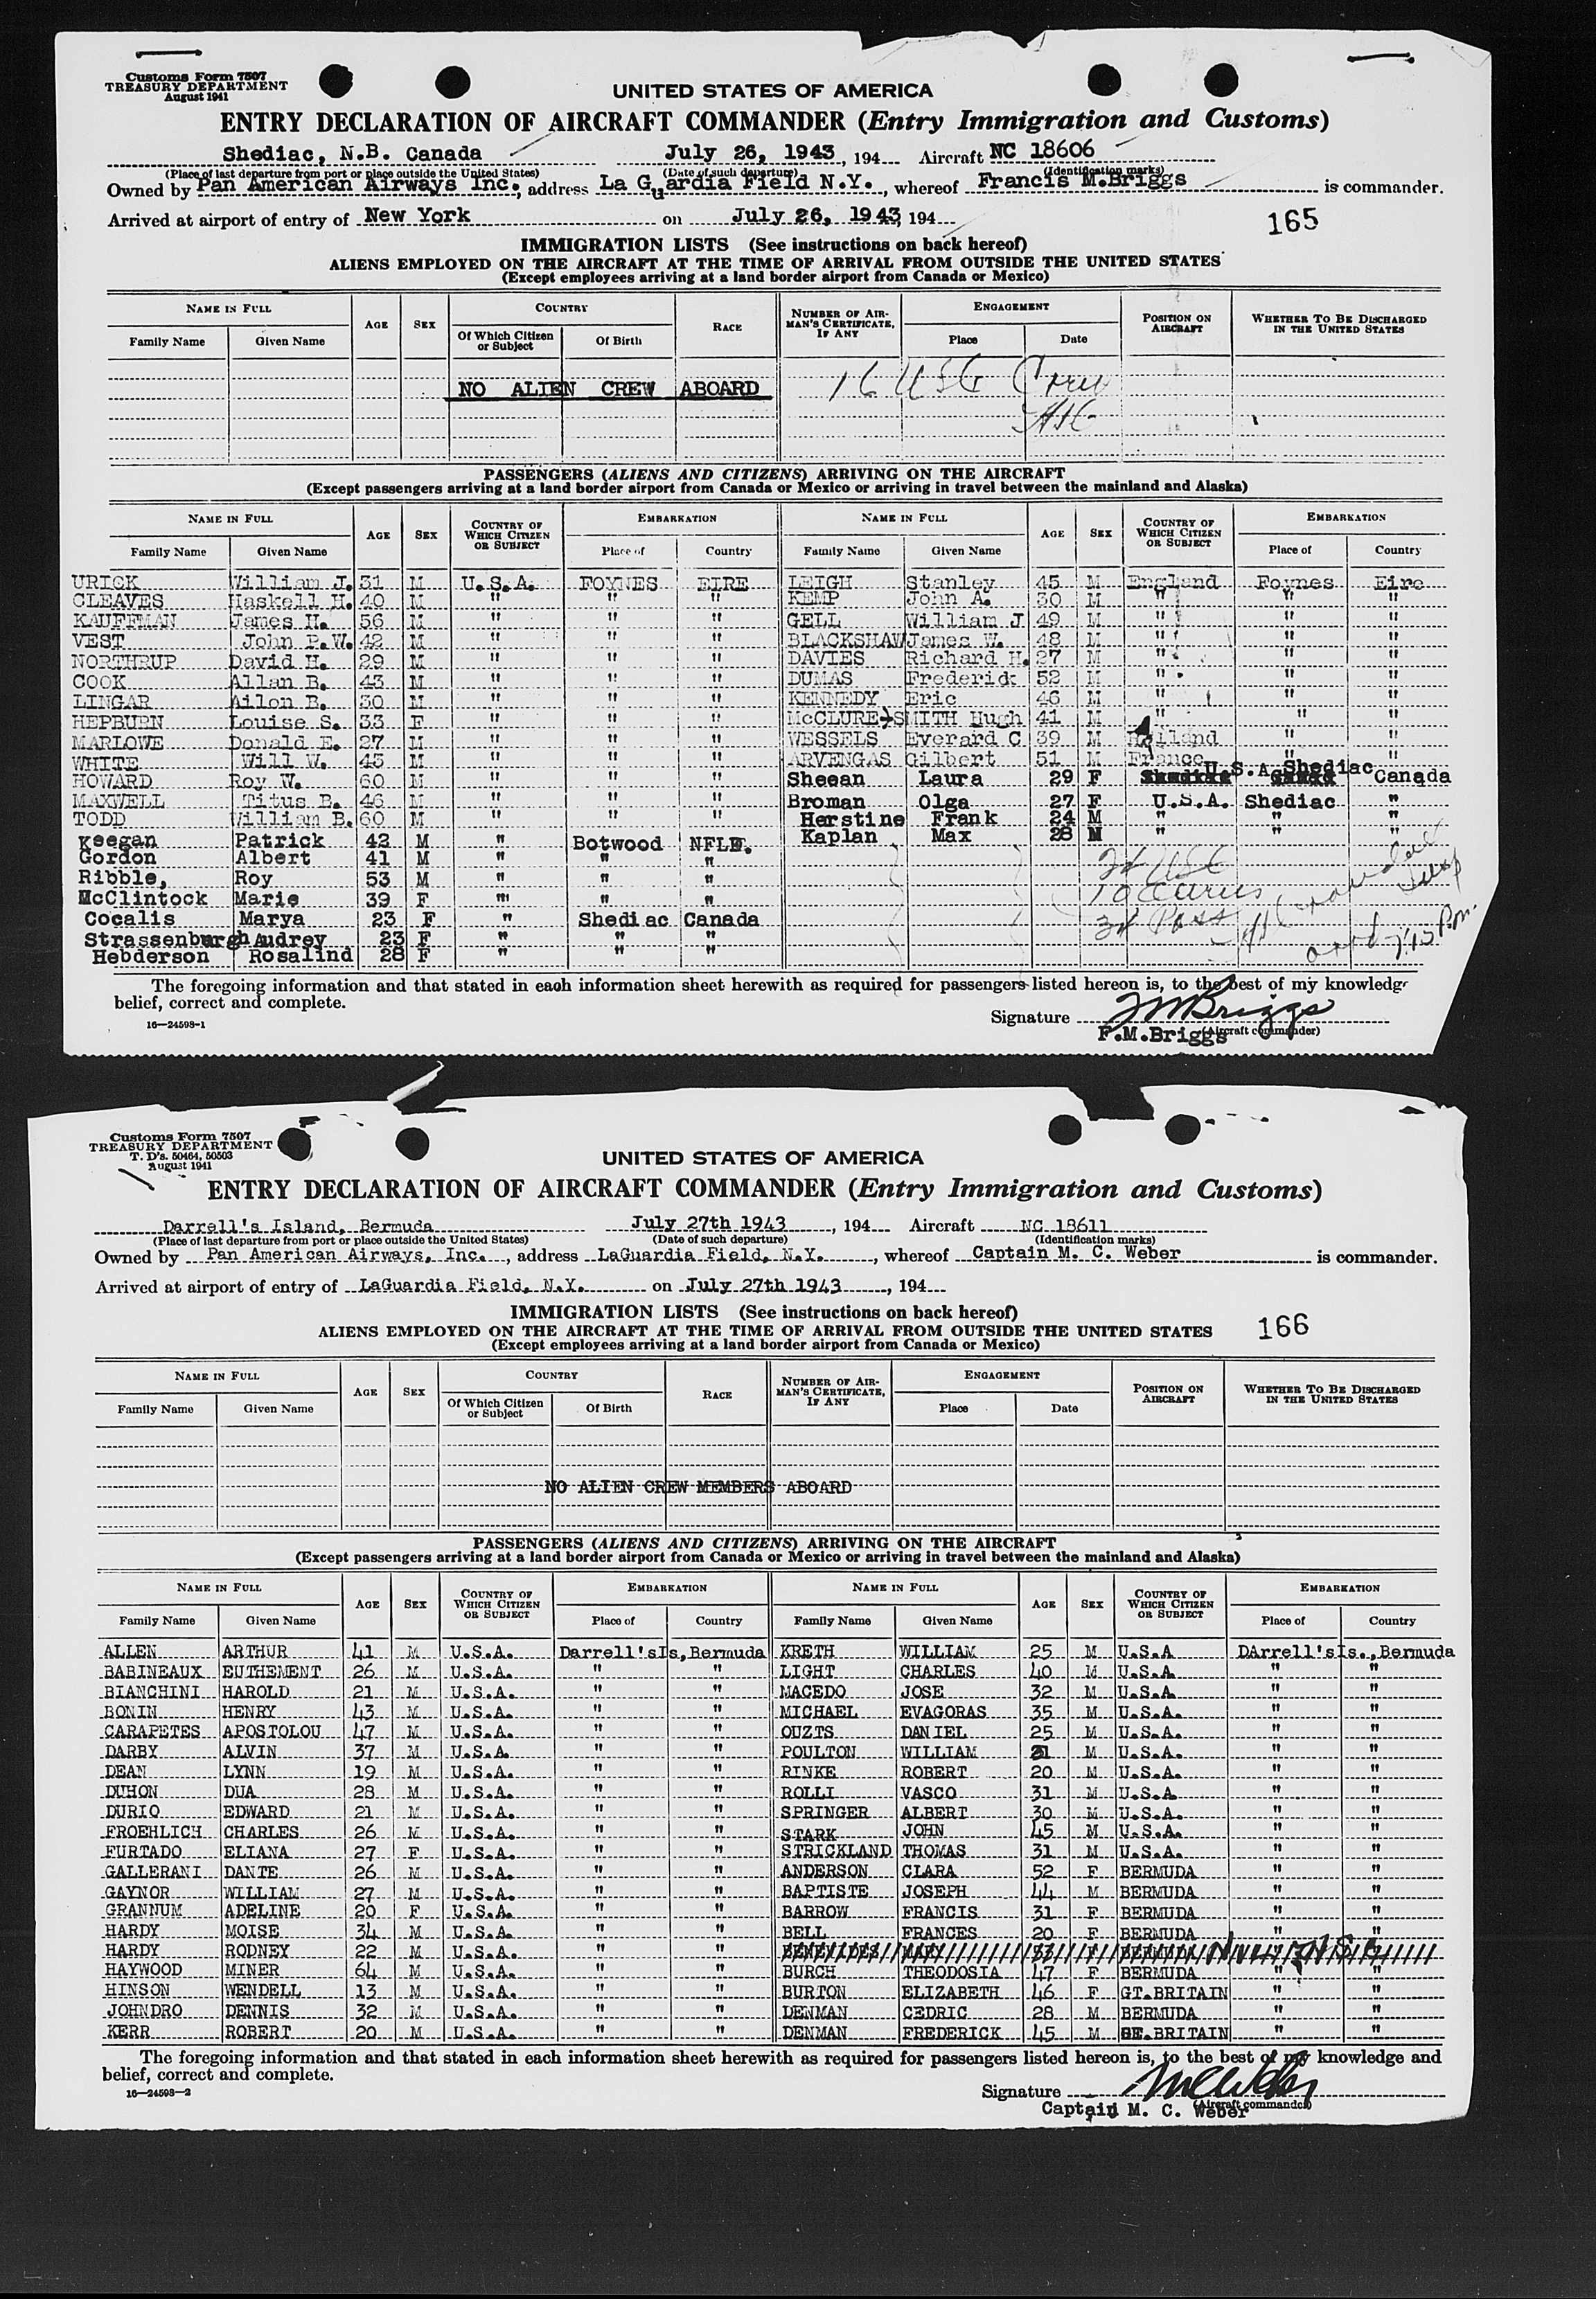 Customs Form 7507
TREASURY DEPARTMENT
August 1941
UNITED STATES OF AMERICA
ENTRY DECLARATION OF AIRCRAFT COMMANDER (Entry Immigration and Customs)
Shediac, N.B. Canada July 26, 1943, 194 Aircraft NC 18606
(Place of last departure from port or place outside the United States) (Date of such departure) (Identification marks)
Owned by Pan American Airways Inc., address La Guardia Field N.Y., whereof Francis M.Briggs is commander.
Arrived at airport of entry of New York on July 26, 1943, 194
165
IMMIGRATION LISTS (See instructions on back hereof)
ALIENS EMPLOYED ON THE AIRCRAFT AT THE TIME OF ARRIVAL FROM OUTSIDE THE UNITED STATES
(Except employees arriving at a land border airport from Canada or Mexico)
NAME IN FULL AGE SEX COUNTRY RACE NUMBER OF AIRMAN'S CERTIFICATE, IF ANY ENGAGEMENT POSITION ON AIRCRAFT WHETHER TO BE DISCHARGED IN THE UNITED STATES
Family Name Given Name Of Which Citizen or Subject Of Birth Place Date
NO ALIEN CREW ABOARD 16 USC Crew
PASSENGERS (ALIENS AND CITIZENS) ARRIVING ON THE AIRCRAFT
(Except passengers arriving at a land border airport from Canada or Mexico or arriving in travel between the mainland and Alaska)
NAME IN FULL AGE SEX COUNTRY OF WHICH CITIZEN OR SUBJECT EMBARKATION NAME IN FULL AGE SEX COUNTRY OF WHICH CITIZEN OR SUBJECT EMBARKATION
Family Name Given Name Place of Country Family Name Given Name Place of Country
URICK William J. 31 M U.S.A. FOYNES EIRE LEIGH Stanley 45 M England Foynes Eire
CLEAVES Haskell H. 40 M " " " KEMP John A. 30 M " " "
KAUFFMAN James H. 56 M " " " GELL William J 49 M " " "
VEST John P.W. 42 M " " " BLACKSHAW James W. 48 M " " "
NORTHRUP David H. 29 M " " " DAVIES Richard H. 27 M " " "
COOK Allan B. 43 M " " " DUMAS Frederick 52 M " " "
LINGAR Ailon B. 30 M " " " KENNEDY Eric 46 M " " "
HEPBURN Louise S. 33 F " " " McCLURE-SMITH Hugh 41 M " " "
MARLOWE Donald E. 27 M " " " WESSELS Everard C 39 M Holland " "
WHITE Will W. 43 M " " " ARVENGAS Gilbert 51 M France " "
HOWARD Roy W. 60 M " " " Sheean Laura 29 F U.S.A. Shediac Canada
MAXWELL Titus B. 46 M " " " Broman Olga 27 F U.S.A. Shediac "
TODD William B. 60 M " " " Herstine Frank 24 M " " "
Keegan Patrick 42 M " Botwood NFLD. Kaplan Max 28 M " " "
Gordon Albert 41 M " " "
Ribble, Roy 53 M " " "
McClintock Marie 39 F " " "
Cocalis Marya 23 F " Shediac Canada
Strassenburgh Audrey 23 F " " "
Hebderson Rosalind 28 F " " "
24 USC
10 aliens
34 Pass
The foregoing information and that stated in each information sheet herewith as required for passengers listed hereon is, to the best of my knowledge
belief, correct and complete.
16—24598-1
Signature FMBriggs
(Aircraft commander)
F.M.Briggs
Customs Form 7507
TREASURY DEPARTMENT
T. D's. 50464, 50503
August 1941
UNITED STATES OF AMERICA
ENTRY DECLARATION OF AIRCRAFT COMMANDER (Entry Immigration and Customs)
Darrell's Island, Bermuda July 27th 1943, 194 Aircraft NC 18611
(Place of last departure from port or place outside the United States) (Date of such departure) (Identification marks)
Owned by Pan American Airways, Inc., address LaGuardia Field, N.Y., whereof Captain M. C. Weber is commander.
Arrived at airport of entry of LaGuardia Field, N.Y. on July 27th 1943, 194
166
IMMIGRATION LISTS (See instructions on back hereof)
ALIENS EMPLOYED ON THE AIRCRAFT AT THE TIME OF ARRIVAL FROM OUTSIDE THE UNITED STATES
(Except employees arriving at a land border airport from Canada or Mexico)
NAME IN FULL AGE SEX COUNTRY RACE NUMBER OF AIRMAN'S CERTIFICATE, IF ANY ENGAGEMENT POSITION ON AIRCRAFT WHETHER TO BE DISCHARGED IN THE UNITED STATES
Family Name Given Name Of Which Citizen or Subject Of Birth Place Date
NO ALIEN CREW MEMBERS ABOARD
PASSENGERS (ALIENS AND CITIZENS) ARRIVING ON THE AIRCRAFT
(Except passengers arriving at a land border airport from Canada or Mexico or arriving in travel between the mainland and Alaska)
NAME IN FULL AGE SEX COUNTRY OF WHICH CITIZEN OR SUBJECT EMBARKATION NAME IN FULL AGE SEX COUNTRY OF WHICH CITIZEN OR SUBJECT EMBARKATION
Family Name Given Name Place of Country Family Name Given Name Place of Country
ALLEN ARTHUR 41 M U.S.A. Darrell'sIs,Bermuda KRETH WILLIAM 25 M U.S.A DArrell'sIs.,Bermuda
BABINEAUX EUTHEMENT 26 M U.S.A. " " LIGHT CHARLES 40 M U.S.A. " "
BIANCHINI HAROLD 21 M U.S.A. " " MACEDO JOSE 32 M U.S.A. " "
BONIN HENRY 43 M U.S.A. " " MICHAEL EVAGORAS 35 M U.S.A. " "
CARAPETES APOSTOLOU 47 M U.S.A. " " OUZTS DANIEL 25 M U.S.A. " "
DARBY ALVIN 37 M U.S.A. " " POULTON WILLIAM 31 M U.S.A. " "
DEAN LYNN 19 M U.S.A. " " RINKE ROBERT 20 M U.S.A. " "
DUHON DUA 28 M U.S.A. " " ROLLI VASCO 31 M U.S.A. " "
DURIO EDWARD 21 M U.S.A. " " SPRINGER ALBERT 30 M U.S.A. " "
FROEHLICH CHARLES 26 M U.S.A. " " STARK JOHN 45 M U.S.A. " "
FURTADO ELIANA 27 F U.S.A. " " STRICKLAND THOMAS 31 M U.S.A. " "
GALLERANI DANTE 26 M U.S.A. " " ANDERSON CLARA 52 F BERMUDA " "
GAYNOR WILLIAM 27 M U.S.A. " " BAPTISTE JOSEPH 44 M BERMUDA " "
GRANNUM ADELINE 20 F U.S.A. " " BARROW FRANCIS 31 F BERMUDA " "
HARDY MOISE 34 M U.S.A. " " BELL FRANCES 20 F BERMUDA " "
HARDY RODNEY 22 M U.S.A. " " BENEVIDES MARY 33 F BERMUDA
HAYWOOD MINER 64 M U.S.A. " " BURCH THEODOSIA 47 F BERMUDA " "
HINSON WENDELL 13 M U.S.A. " " BURTON ELIZABETH 46 F GT.BRITAIN " "
JOHNDRO DENNIS 32 M U.S.A. " " DENMAN CEDRIC 28 M BERMUDA " "
KERR ROBERT 20 M U.S.A. " " DENMAN FREDERICK 45 M GT.BRITAIN " "
The foregoing information and that stated in each information sheet herewith as required for passengers listed hereon is, to the best of my knowledge and
belief, correct and complete.
16—24598-2
Signature MCWeber
(Aircraft commander)
Captain M. C. Weber